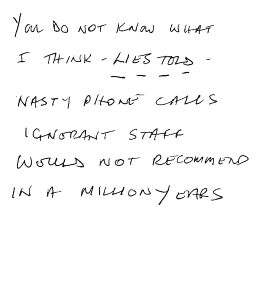 YOU DO NOT KNOW WHAT
I THINK - LIES TOLD -
NASTY PHONE CALLS
IGNORANT STAFF
WOULD NOT RECOMMEND
IN A MILLION YEARS